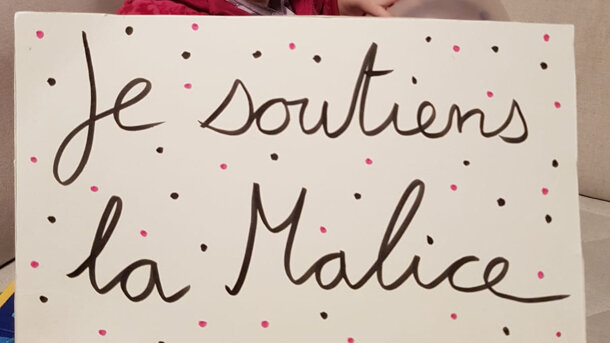 Je soutiens
la Malice